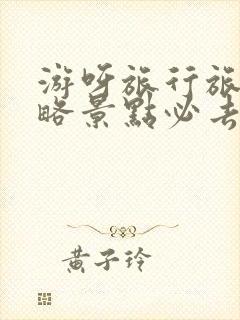 游呀旅行旅
略景點必去
黃子玲